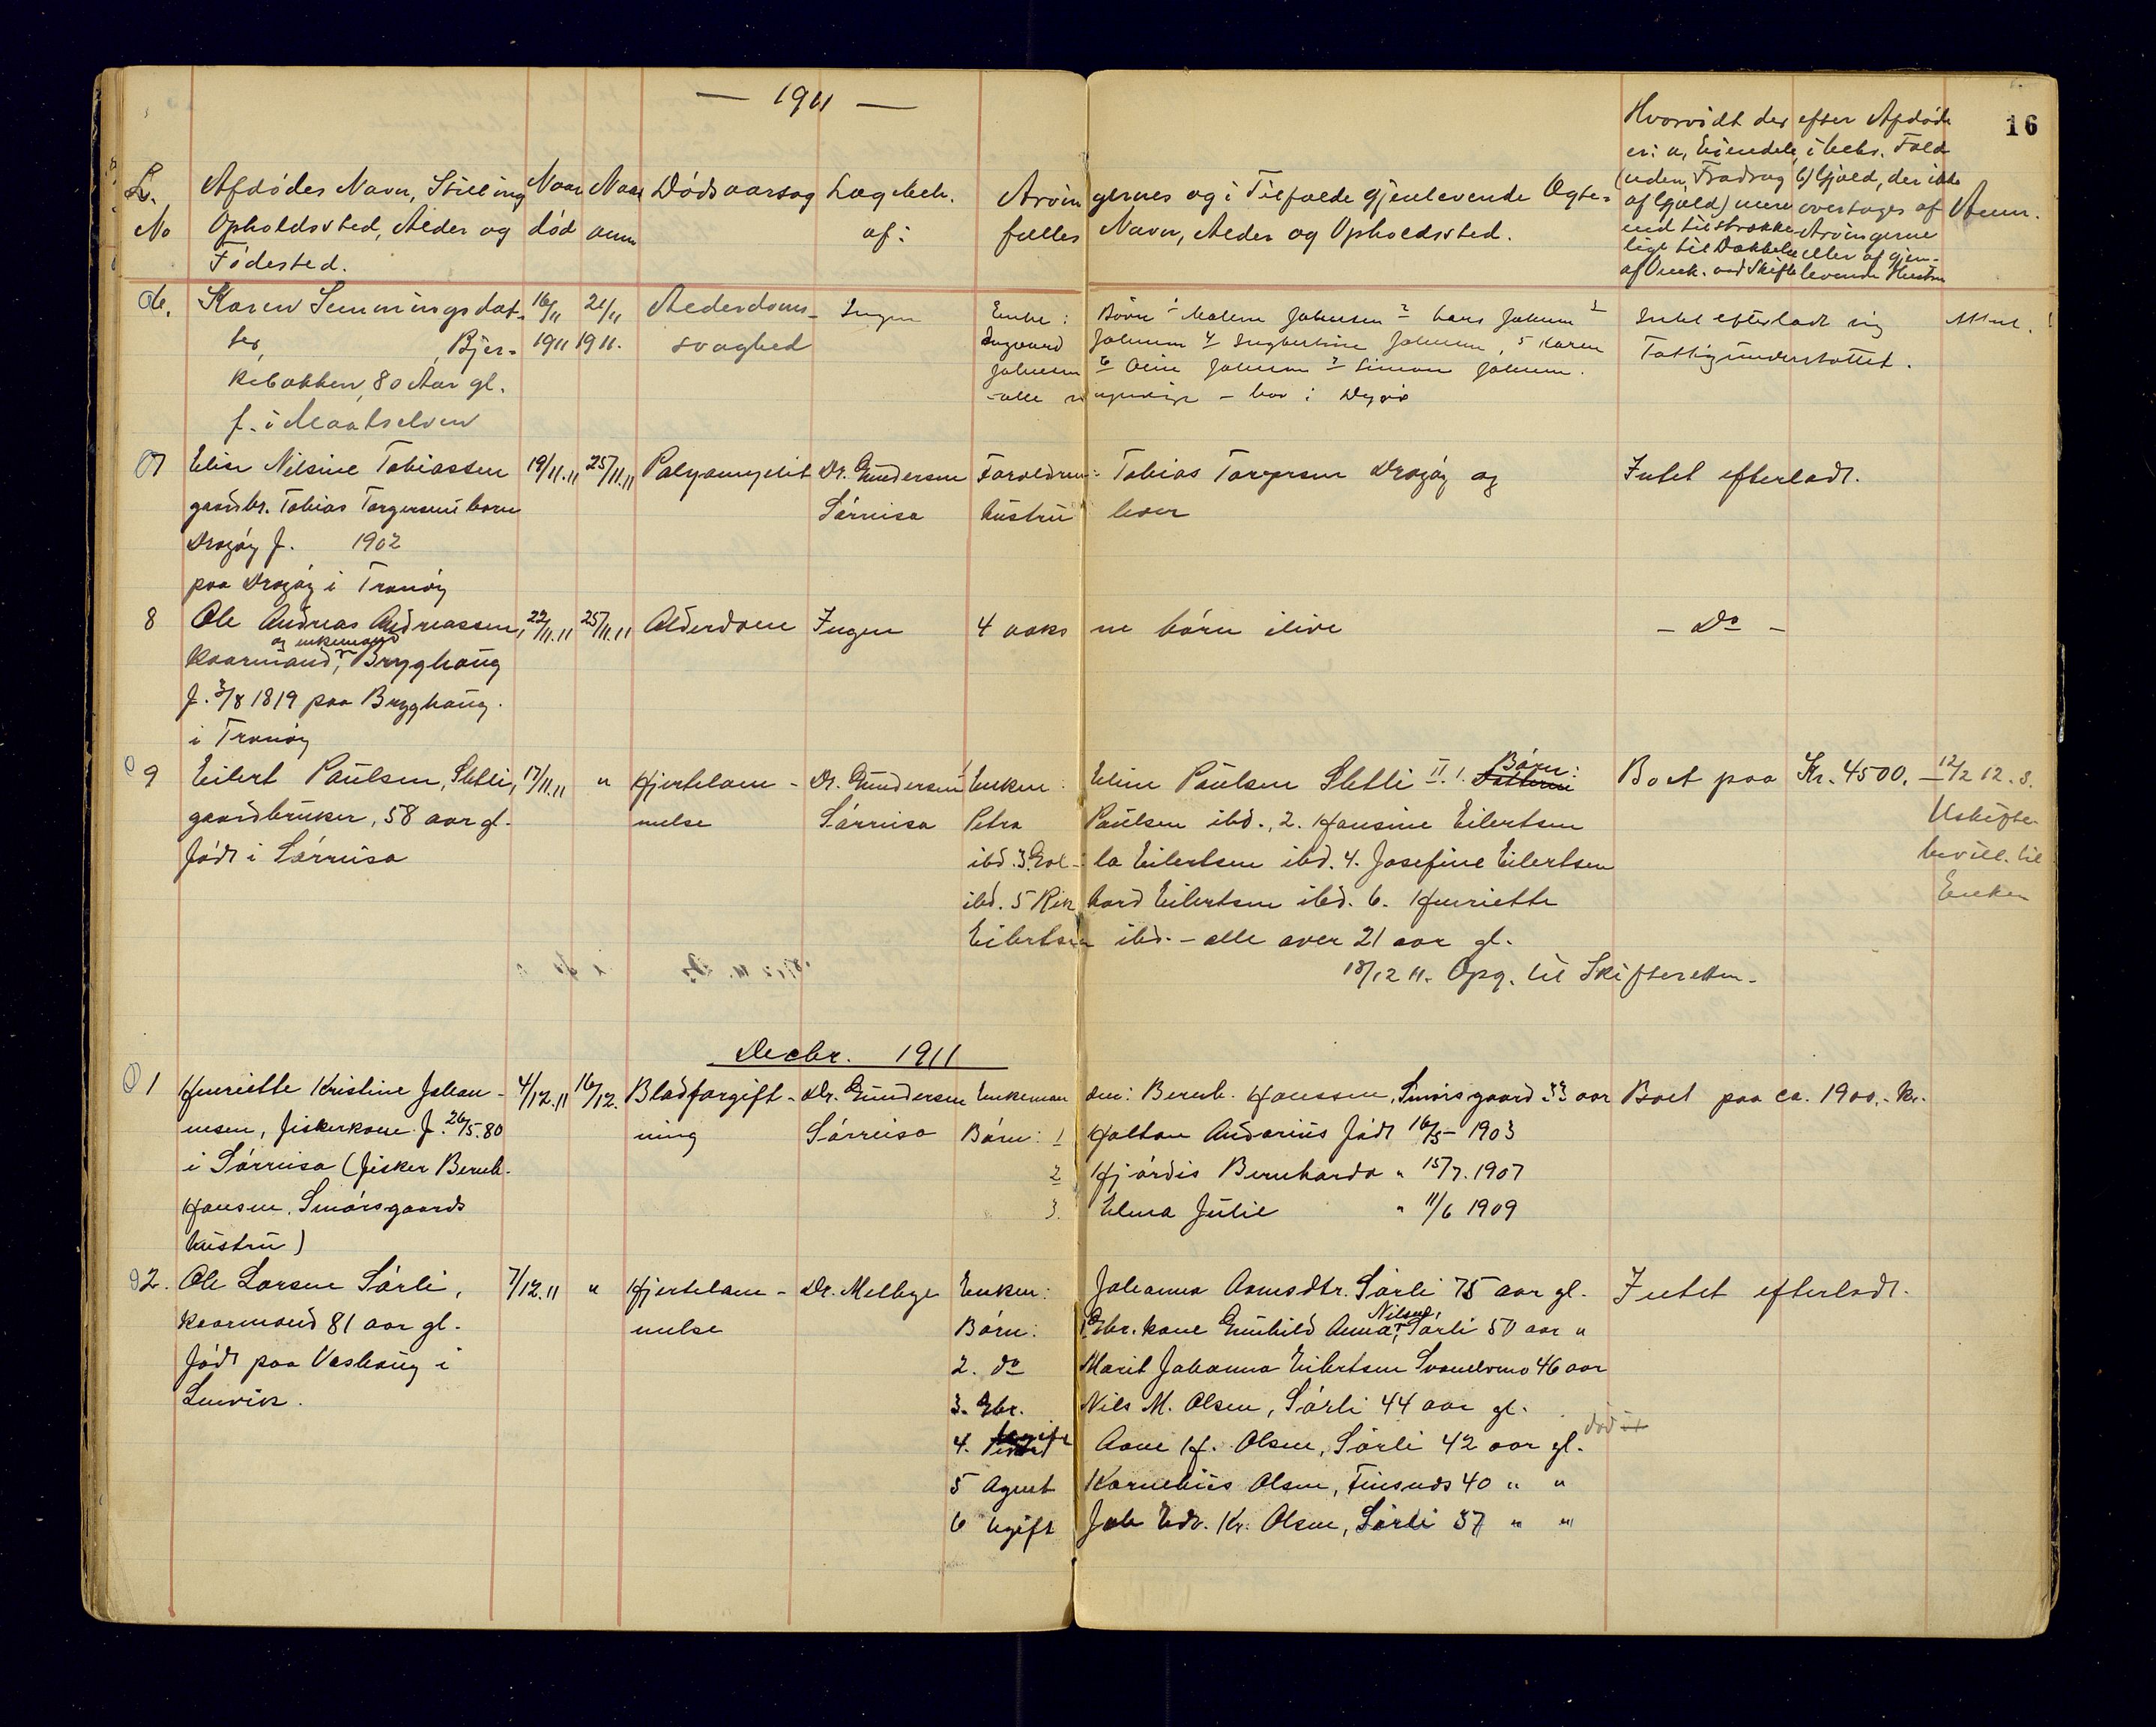 — 1911 —
16
L. No
Afdødes Navn, Stilling
Opholdssted, Alder og
Fødested.
Naar død
Naar anm
Dødsaarsag
Lægebeh. af:
Arvingernes og i Tilfælde gjenlevende Ægte-
fælles Navn, Alder og Opholdssted.
Hvorvidt der efter Afdøde
er: a, Eiendele, i bekr. Fald
(uden Fradrag
af Gjæld) mere
end tilstrække-
lige til Dækkelse
af Omk. ved Skifte
b) Gjæld, der ikke
overtages af
Arvingerne
eller af gjen-
levende Hustru
Anm.
6. Karen Sem­mingsdat- 16/11 21/11 Alderdoms- Ingen Enke: Børn 1 Malene Johnsen 2 Lars Johnsen 3 Intet efterladt sig
ter, Bjer- 1911 1911. svaghed Ingvard Johnsen 4 Ingbertine Johnsen, 5 Karen Fattigunderstøttet.
kebakken, 80 Aar gl. Johnsen 6 Oline Johnsen 7 Simon Johnsen.
f. i Maalselven - alle - bor i
7 Elise Nilsine Tobiassen 19/11.11 25/11.11 Polyomyelit Dr. Gundersen Forældrene: Tobias Torgersen Drøjøy og Intet efterladt.
gaardbr. Tobias Torgersens barn Sørreisa hustru lever
Drøjøy f. 1902
paa Drøjøy i Tranøy
8 Ole Andreas Andreassen, 22/11.11 25/11.11 Alderdom Ingen 4 voksne børn ilive - Do -
kaarmand, og enkemand Brygghaug
f. 3/8 1819 paa Brygghaug.
i Tranøy
9 Eilert Paulsen, Sletli, 17/11.11 " Hjertelam- Dr. Gundersen Enken: Eline Paulsen Sletli II. 1. Børn: Boet paa Kr. 4500. 12/2 12. s.
gaardbruker, 58 aar gl. melse Sørreisa Petra Paulsen ibd., 2. Hansine Eilertsen Uskifte-
født i Sørreisa ibd. 3. Golla Eilertsen ibd. 4. Josefine Eilertsen bevill. til
ibd. 5 Rikhard Eilertsen ibd. 6. Henriette Enken
Eilertsen ibd. - alle over 21 aar gl.
18/12 11. Opg. til Skifteretten.
Decbr. 1911
1 Henriette Kristine Johan- 4/12.11 16/12. Blodforgift- Dr. Gundersen Enkemanden: Bernh. Hanssen, Smørsgaard 33 aar Boet paa ca. 1900.- kr.
nesen, fiskerkone f. 26/5.80 ning Sørreisa Børn: 1 Halton Andorius født 16/5- 1903
i Sørreisa (fisker Bernh. 2 Hjørdis Bernharda " 15/7. 1907
Hansen, Smørsgaards 3. Elma Julie " 11/6 1909
hustru)
2. Ole Larsen Sørli, 7/12.11 " Hjertelam- Dr. Melbye Enken: Johanna Aamsdtr. Sørli 75 aar gl. Intet efterladt.
kaarmand 81 aar gl. melse Børn: 1. Gbr. kone Gunhild Anna Nilsen, Sørli 50 aar "
født paa Vashaug i 2. do Marit Johanna Eilertsen Svanelvmo 46 aar
Lenvik. 3. Gbr. Nils M. Olsen, Sørli 44 aar gl.
4. Ugift Aane H. Olsen, Sørli 42 aar gl. død
5 Agent Kornelius Olsen, Finsnes 40 " "
6 Ugift Joh Edv. Kr. Olsen, Sørli 37 " "